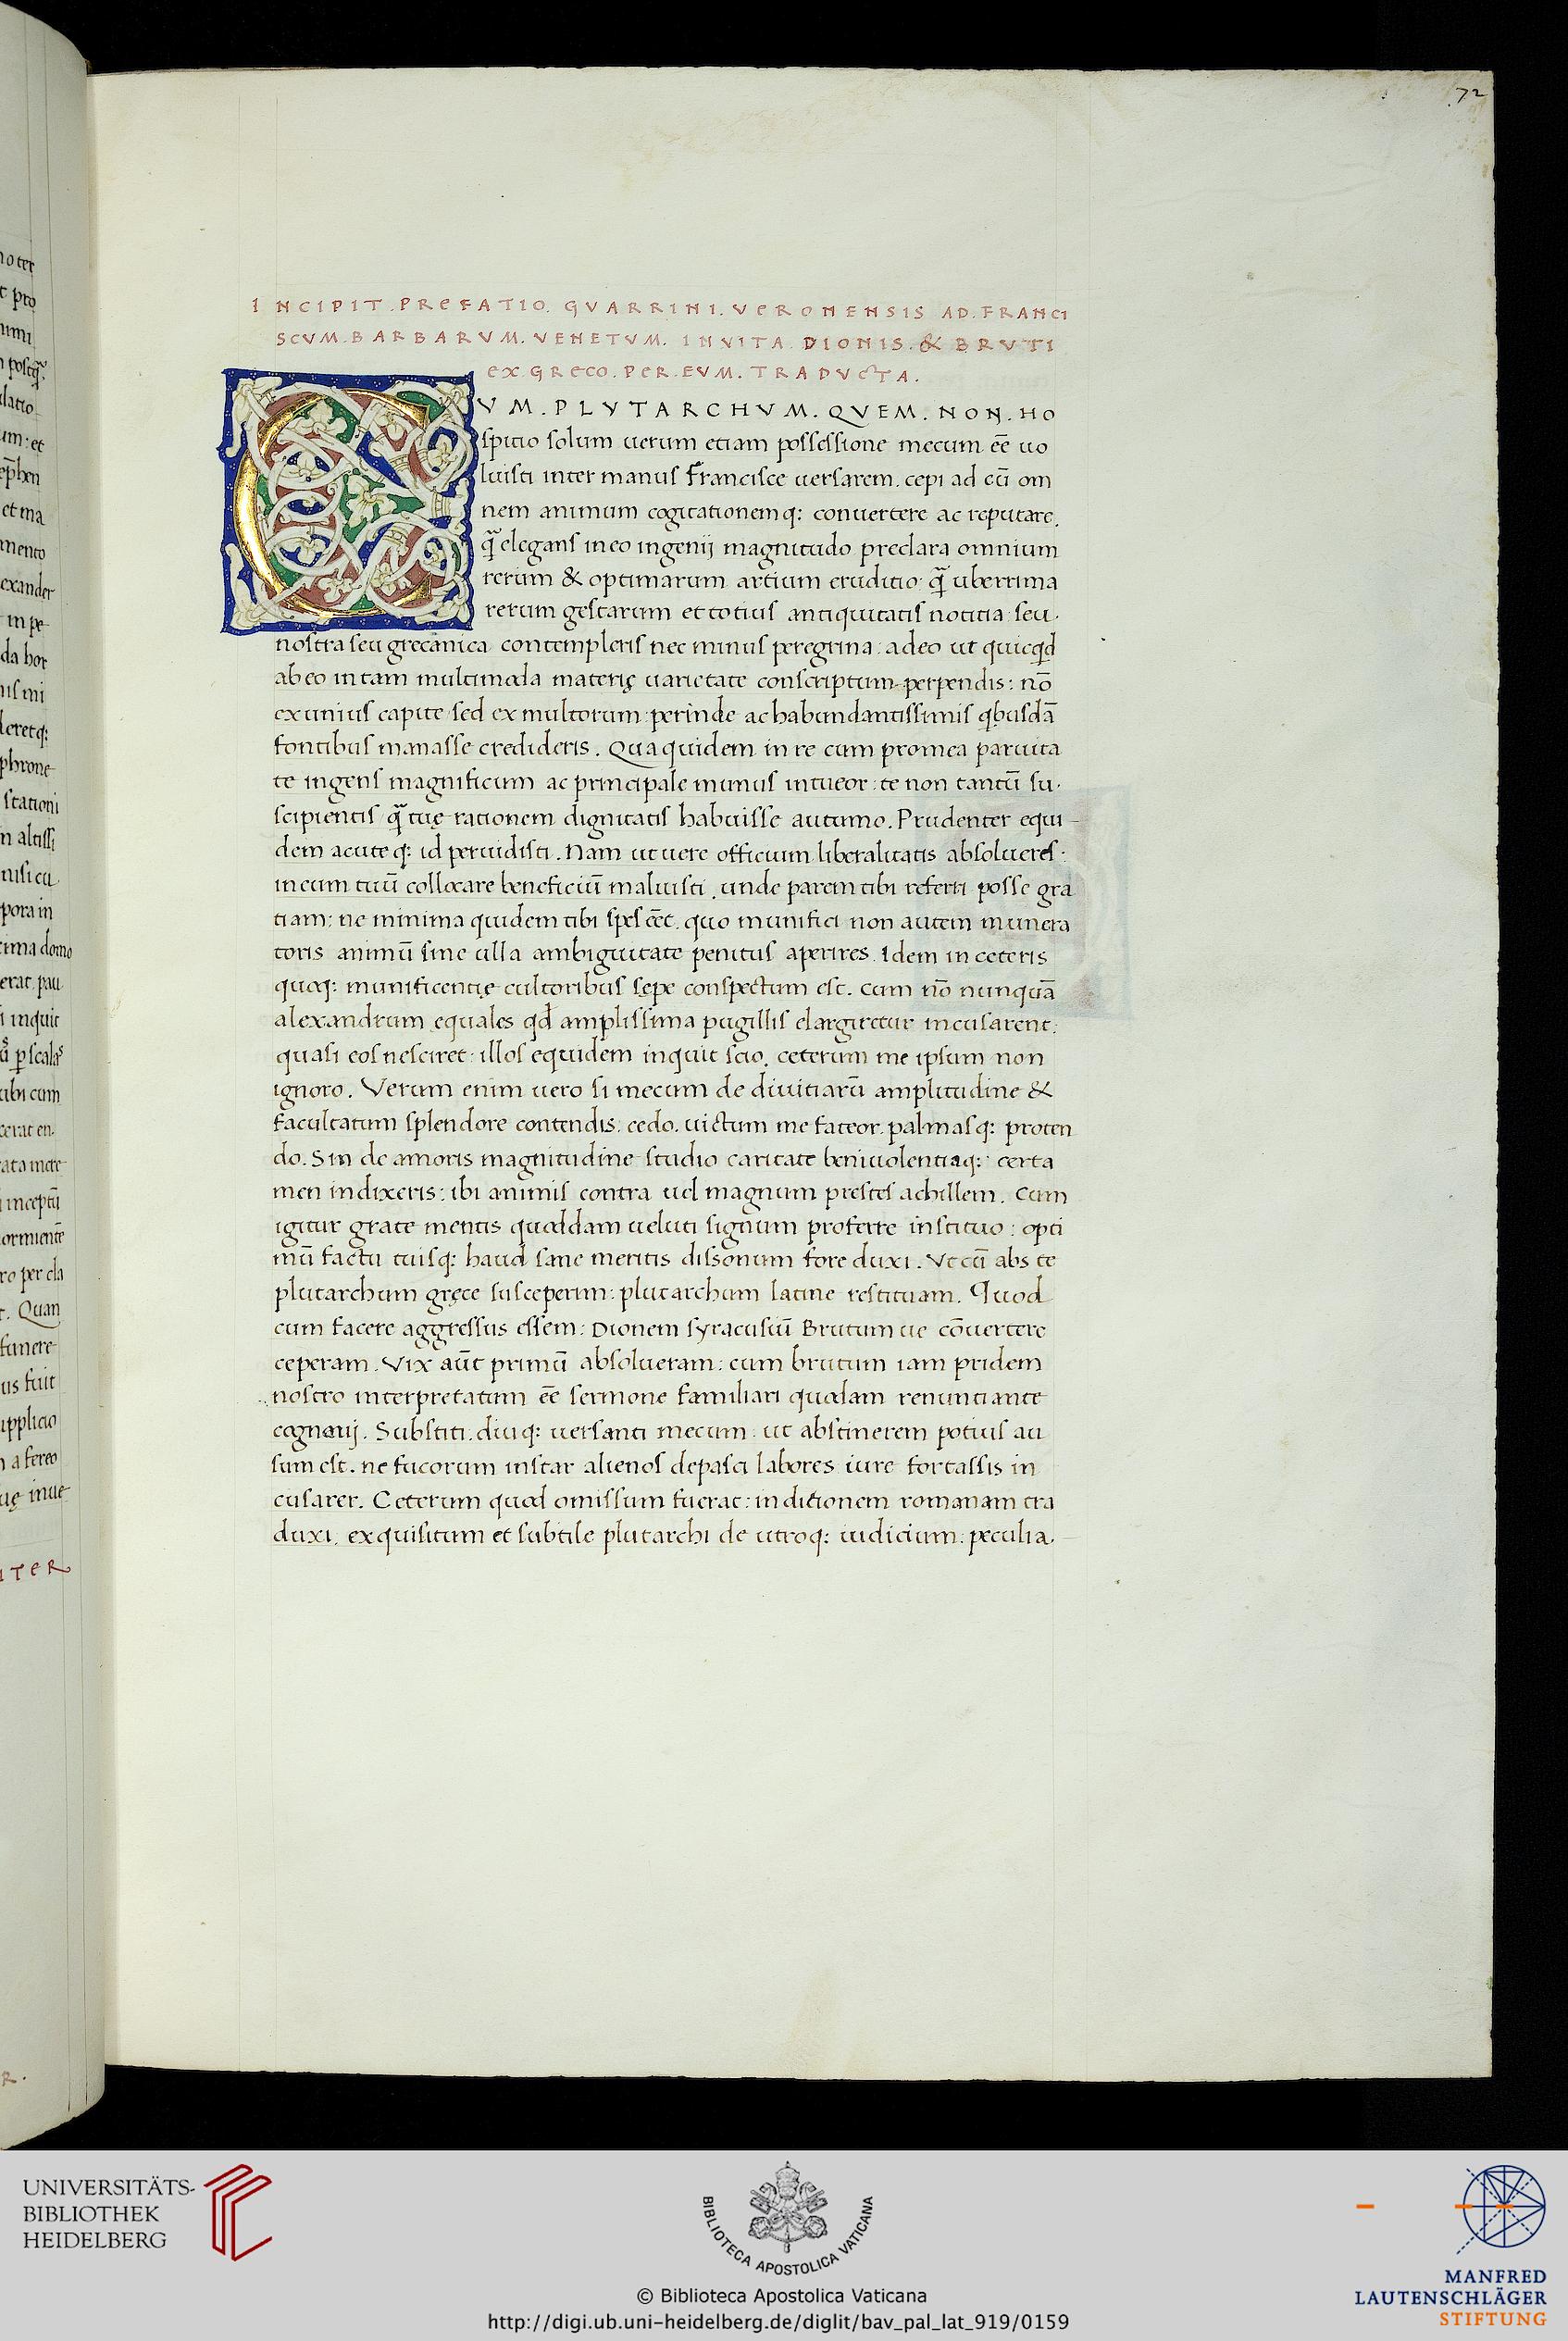 72
INCIPIT . PREFATIO . GVARRINI . VERONENSIS AD . FRANCI
SCVM . BARBARVM . VENETVM . INVITA DIONIS . & BRVTI
EX . GRECO . PER . EVM . TRADVCTA .
CVM . PLVTARCHVM . QVEM . NON . HO
spitio solum uerum etiam possessione mecum eē uo
luisti inter manus Francisce uersarem . cepi ad eū om
nem animum cogitationemq: conuertere ac reputare .
q̃ elegans in eo ingenij magnitudo preclara omnium
rerum & optimarum artium eruditio q̃ uberrima
rerum gestarum et totius antiquitatis notitia seu
nostra seu grecanica contempleris nec minus peregrina : adeo ut quicq̄d
ab eo in tam multimoda materię uarietate conscriptum perpendis : nō
ex unius capite sed ex multorum perinde ac habundantissimis q̄busdā
fontibus manasse credideris . Qua quidem in re cum pro mea paruita
te ingens magnificum ac principale munus intueor : te non tantū su
scipientis q̃ tuę rationem dignitatis habuisse autumo . Prudenter equi
dem acuteq: id peruidisti . Nam ut uere officium liberalitatis absolueres :
in eum tuū collocare beneficiū maluisti . unde parem tibi referri posse gra
tiam : ne minima quidem tibi spes eēt . quo munifici non autem munera
toris animū sine ulla ambiguitate penitus aperires . Idem in ceteris
quoq: munificentię cultoribus sępe conspectum est . cum nō nunquā
alexandrum equales qd̄ amplissima pugillis elargiretur incusarent :
quasi eos nesciret : illos equidem inquit scio . ceterum me ipsum non
ignoro . Verum enim uero si mecum de diuitiarū amplitudine &
facultatum splendore contendis : cedo . uictum me fateor . palmasq: proten
do . Sin de amoris magnitudine studio caritate beniuolentiaq: certa
men indixeris : ibi animis contra uel magnum prestes achillem . Cum
igitur grate mentis quoddam ueluti signum proferre instituo : opti
mū factu tuisq: haud sane meritis dissonum fore duxi . Vt cū abs te
plutarchum gręce susceperim : plutarchum latine restituam . Quod
cum facere aggressus essem : Dionem syracusiū Brutum ue cōuertere
ceperam . Vix aūt primū absolueram : cum brutum iam pridem
nostro interpretatum eē sermone familiari quodam renuntiante
cognoui . Substiti . diuq: uersanti mecum ut abstinerem potius au
sum est . ne fucorum instar alienos depasci labores iure fortassis in
cusarer . Ceterum quod omissum fuerat : in dictionem romanam tra
duxi . exquisitum et subtile plutarchi de utroq: iudicium : peculia
UNIVERSITÄTS-
BIBLIOTHEK
HEIDELBERG
BIBLIOTECA APOSTOLICA VATICANA
© Biblioteca Apostolica Vaticana
http://digi.ub.uni-heidelberg.de/diglit/bav_pal_lat_919/0159
MANFRED
LAUTENSCHLÄGER
STIFTUNG